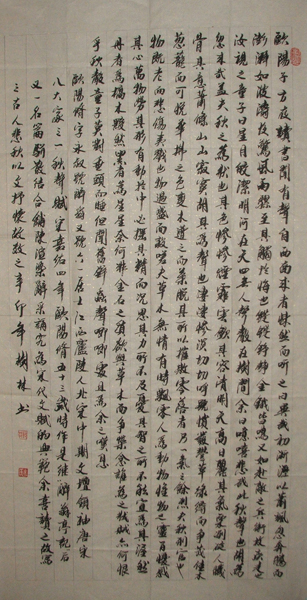 歐陽子方夜讀書聞有聲自西南來者悚然而聽之曰異哉初淅瀝以蕭颯忽奔騰而
澎湃如波濤夜驚風雨驟至其觸於物也鏦鏦錚錚金鐵皆鳴又如赴敵之兵銜枚疾走
汝視之童子曰星月皎潔明河在天四無人聲聲在樹間余曰噫嘻悲哉此秋聲也胡為
忽來哉蓋夫秋之為狀也其色慘淡煙霏雲歛其容清明天高日晶其氣慄冽砭人肌
骨其意蕭條山川寂寥故其為聲也淒淒切切呼號憤發豐草綠縟而爭茂佳木
葱籠而可悅草拂之色變木遭之而葉脫其所以摧敗零落者乃一氣之餘烈夫秋刑官也
物既老而悲傷夷戮也物過盛而當殺嗟夫草木無情有時飄零人為動物惟物之靈百憂感
其心萬物勞其形有動於中必搖其精而況思其力所不及憂其智之所不能宜其渥然
丹者為槁木黟然黑者為星星奈何非金石之質欲與草木而爭榮念誰為之戕賊亦何恨
乎秋聲童子莫對垂頭而睡但聞四壁蟲聲唧唧如助余之嘆息
歐陽修字永叔號醉翁又號六一居士江西廬陵人北宋中期文壇領袖唐宋
八大家之一秋聲賦寫嘉佑四年歐陽修五十三歲時作是繼醉翁亭記后
又一名篇駢散結合鋪陳渲染辭采講究為宋代文賦的典範余喜讀之故寫
之古人悲秋以文抒懷故效之辛卯年樹林書